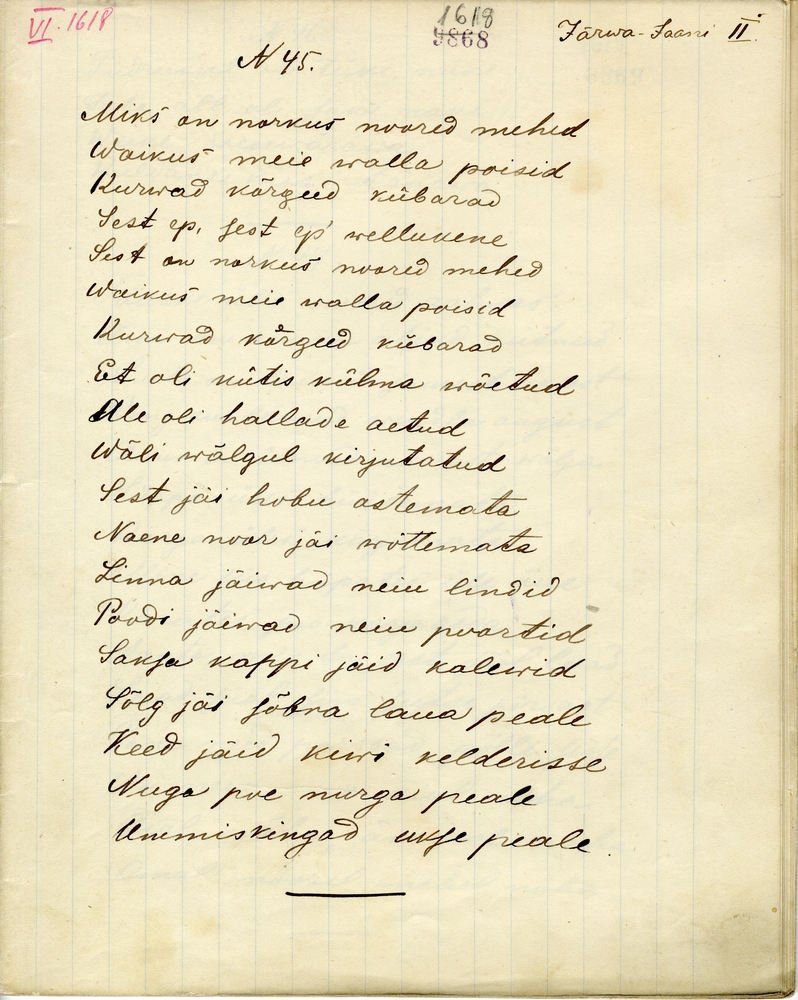 VI. 1618
1618
9868
Järwa-Jaani II.
N 45.
Miks on norkus noored mehed
Waikus meie walla poisid
Kurwad kõrged kübarad
Sest ep, sest ep' wellukene
Sest on norkus noored mehed
Waikus meie walla poisid
Kurwad kõrged kübarad
Et oli kütis külma wõetud
Ale oli hallade aetud
Wäli wälgul kirjutatud
Sest jäi hobu ostemata
Naene noor jäi wõttemata
Linna jäiwad neiu lindid
Poodi jäiwad neiu poortid
Saksa kappi jäid kalewid
Sõlg jäi sõbra laua peale
Keed jäid kiwi kelderisse
Nuga poe nurga peale
Ummiskingad ukse peale.